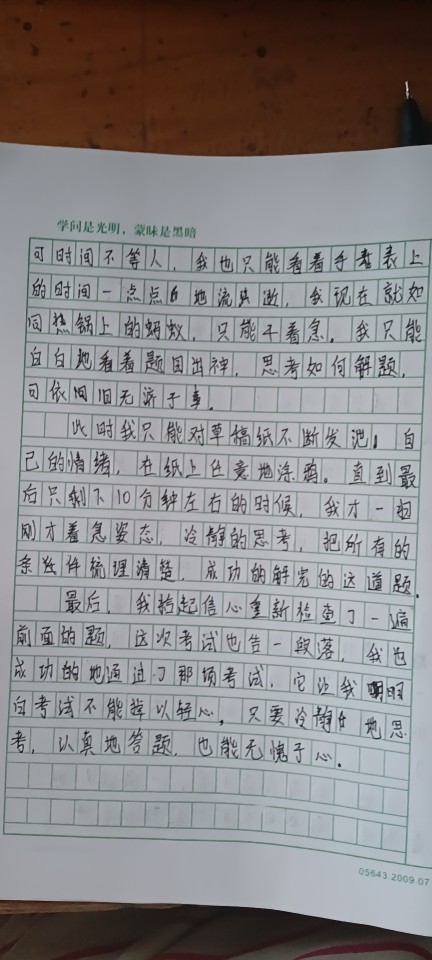 学问是光明，蒙昧是黑暗
可时间不等人，我也只能看着手表上
的时间一点点地流逝，我现在就如
同热锅上的蚂蚁，只能干着急。我只能
白白地看着题目出神，思考如何解题，
可依旧无济于事。
此时我只能对草稿纸不断发泄自
己的情绪，在纸上任意地涂鸦。直到最
后只剩下10分钟左右的时候，我才一扫
刚才着急姿态，冷静的思考，把所有的
条件梳理清楚，成功的解完的这道题。
最后，我拾起信心重新检查了一遍
前面的题，这次考试也告一段落，我也
成功的地通过了那项考试，它让我明
白考试不能掉以轻心，只要冷静地思
考，认真地答题，也能无愧于心。
05643 2009.07